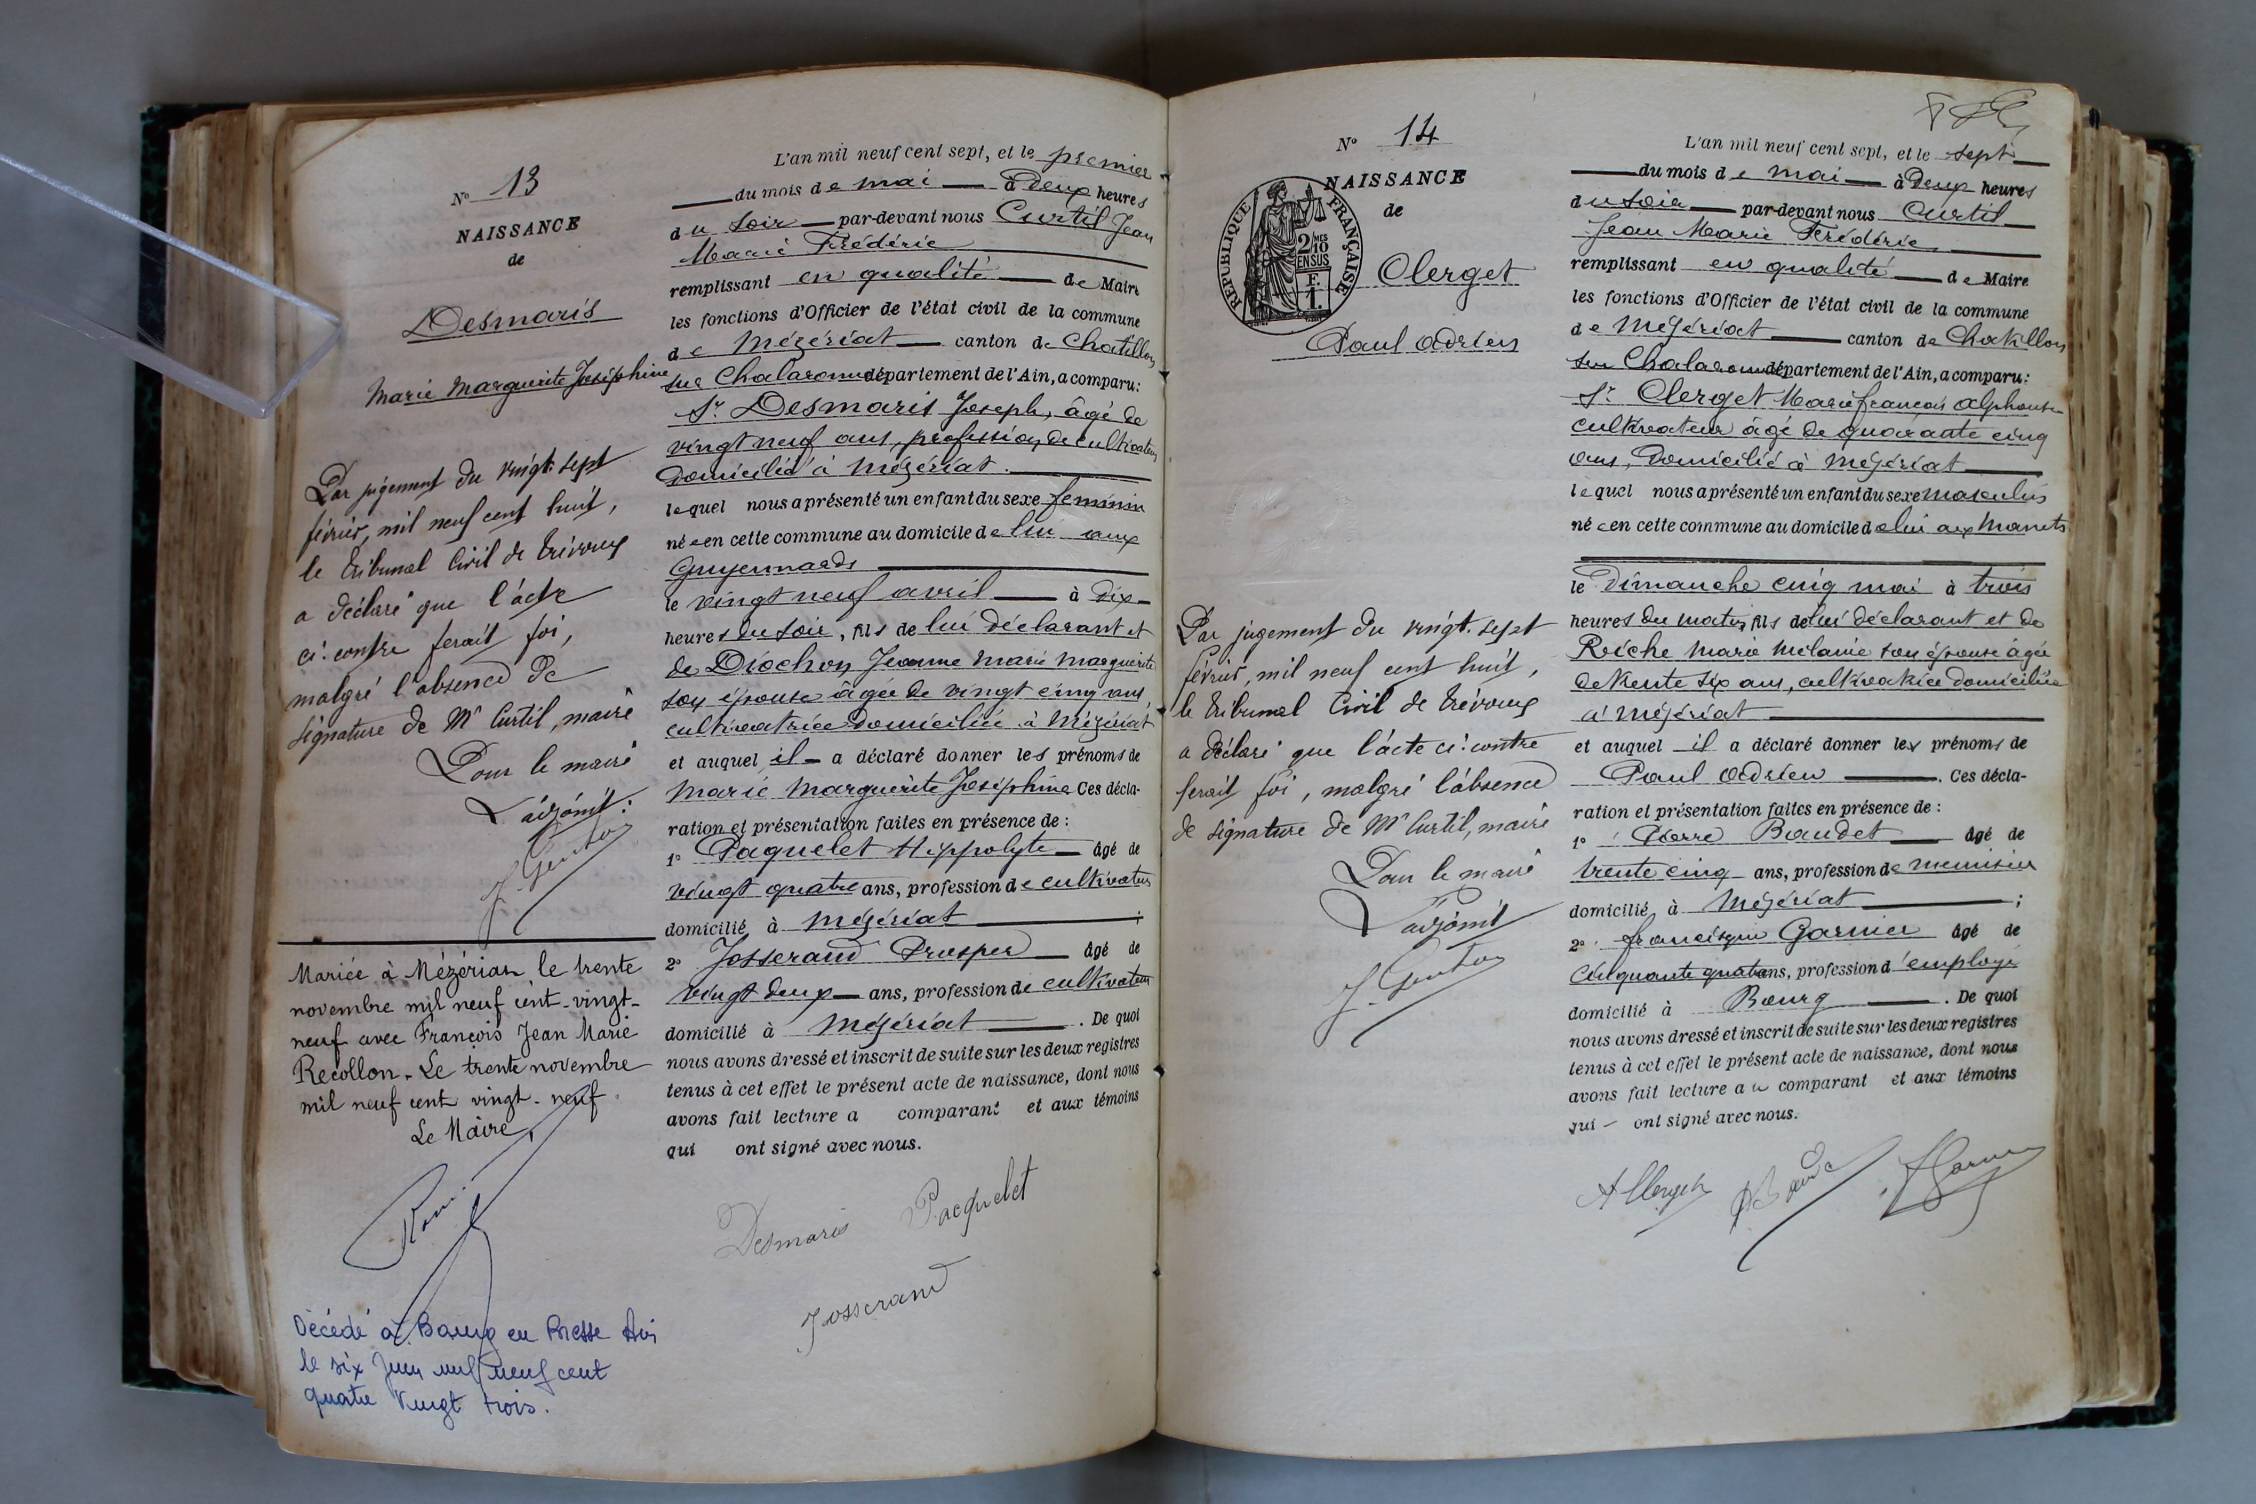 N° 13
NAISSANCE
de
Desmaris
Marie Marguerite Joséphine
Par jugement du vingt-sept
février, mil neuf cent huit,
le tribunal Civil de Trévoux
a déclaré que l'acte
ci-contre ferait foi,
malgré l'absence de
signature de Mr Curtil, maire
Pour le maire
L'adjoint:
Mariée à Mézériat le trente
novembre mil neuf cent-vingt-
neuf avec François Jean Marie
Recollon. Le trente novembre
mil neuf cent vingt-neuf.
Le Maire,
Décédé à Bourg en Bresse Ain
le six Juin mil neuf cent
quatre vingt trois.
L'an mil neuf cent sept, et le premier
du mois de mai à Deux heures
du soir par-devant nous Curtil Jean
Marie Frédéric
remplissant en qualité de Maire
les fonctions d'Officier de l'état civil de la commune
de Mézériat canton de Chatillon
sur Chalaronne département de l'Ain, a comparu:
Sr Desmaris Joseph, âgé de
vingt neuf ans, profession de cultivateur
Domicilié à Mézériat.
lequel nous a présenté un enfant du sexe feminin
née en cette commune au domicile de lui aux
Guyennards
le vingt neuf avril à dix
heures du soir, fils de lui déclarant et
de Diochon Jeanne Marie Marguerite
son épouse âgée de vingt cinq ans
cultivatrice domiciliée à Mézériat
et auquel il a déclaré donner les prénoms de
Marie Marguerite Joséphine Ces décla-
ration et présentation faites en présence de :
1° Paquelet Hippolyte âgé de
vingt quatre ans, profession de cultivateur
domicilié à Mézériat ;
2° Josserand Prosper âgé de
vingt deux ans, profession de cultivateur
domicilié à Mézériat . De quoi
nous avons dressé et inscrit de suite sur les deux registres
tenus à cet effet le présent acte de naissance, dont nous
avons fait lecture a comparant et aux témoins
qui ont signé avec nous.
Desmaris Pacquelet
Josserand
N° 14
NAISSANCE
de
RÉPUBLIQUE FRANÇAISE
2/10 MES
EN SUS
F.
1.
Clerget
Paul Adrien
Par jugement du vingt-sept
février, mil neuf cent huit,
le tribunal Civil de Trévoux
a déclaré que l'acte ci-contre
ferait foi, malgré l'absence
de signature de Mr Curtil, maire
Pour le maire
L'adjoint
L'an mil neuf cent sept, et le sept
du mois de mai à Deux heures
du soir par-devant nous Curtil
Jean Marie Frédéric
remplissant en qualité de Maire
les fonctions d'Officier de l'état civil de la commune
de Mézériat canton de Chatillon
sur Chalaronne département de l'Ain, a comparu:
Sr Clerget Marie françois Alphonse
cultivateur âgé de quarante cinq
ans, Domicilié à Mézériat
lequel nous a présenté un enfant du sexe masculin
né en cette commune au domicile de lui aux Manets
le Dimanche cinq mai à trois
heures du matin, fils de lui déclarant et de
Réiche Marie Mélanie son épouse âgée
de trente six ans, cultivatrice domiciliée
à Mézériat
et auquel il a déclaré donner les prénoms de
Paul Adrien . Ces décla-
ration et présentation faites en présence de :
1° Pierre Baudet âgé de
trente cinq ans, profession de menuisier
domicilié à Mézériat ;
2° francisque Garnier âgé de
cinquante quatre ans, profession d'employé
domicilié à Bourg . De quoi
nous avons dressé et inscrit de suite sur les deux registres
tenus à cet effet le présent acte de naissance, dont nous
avons fait lecture au comparant et aux témoins
qui ont signé avec nous.
A Clerget